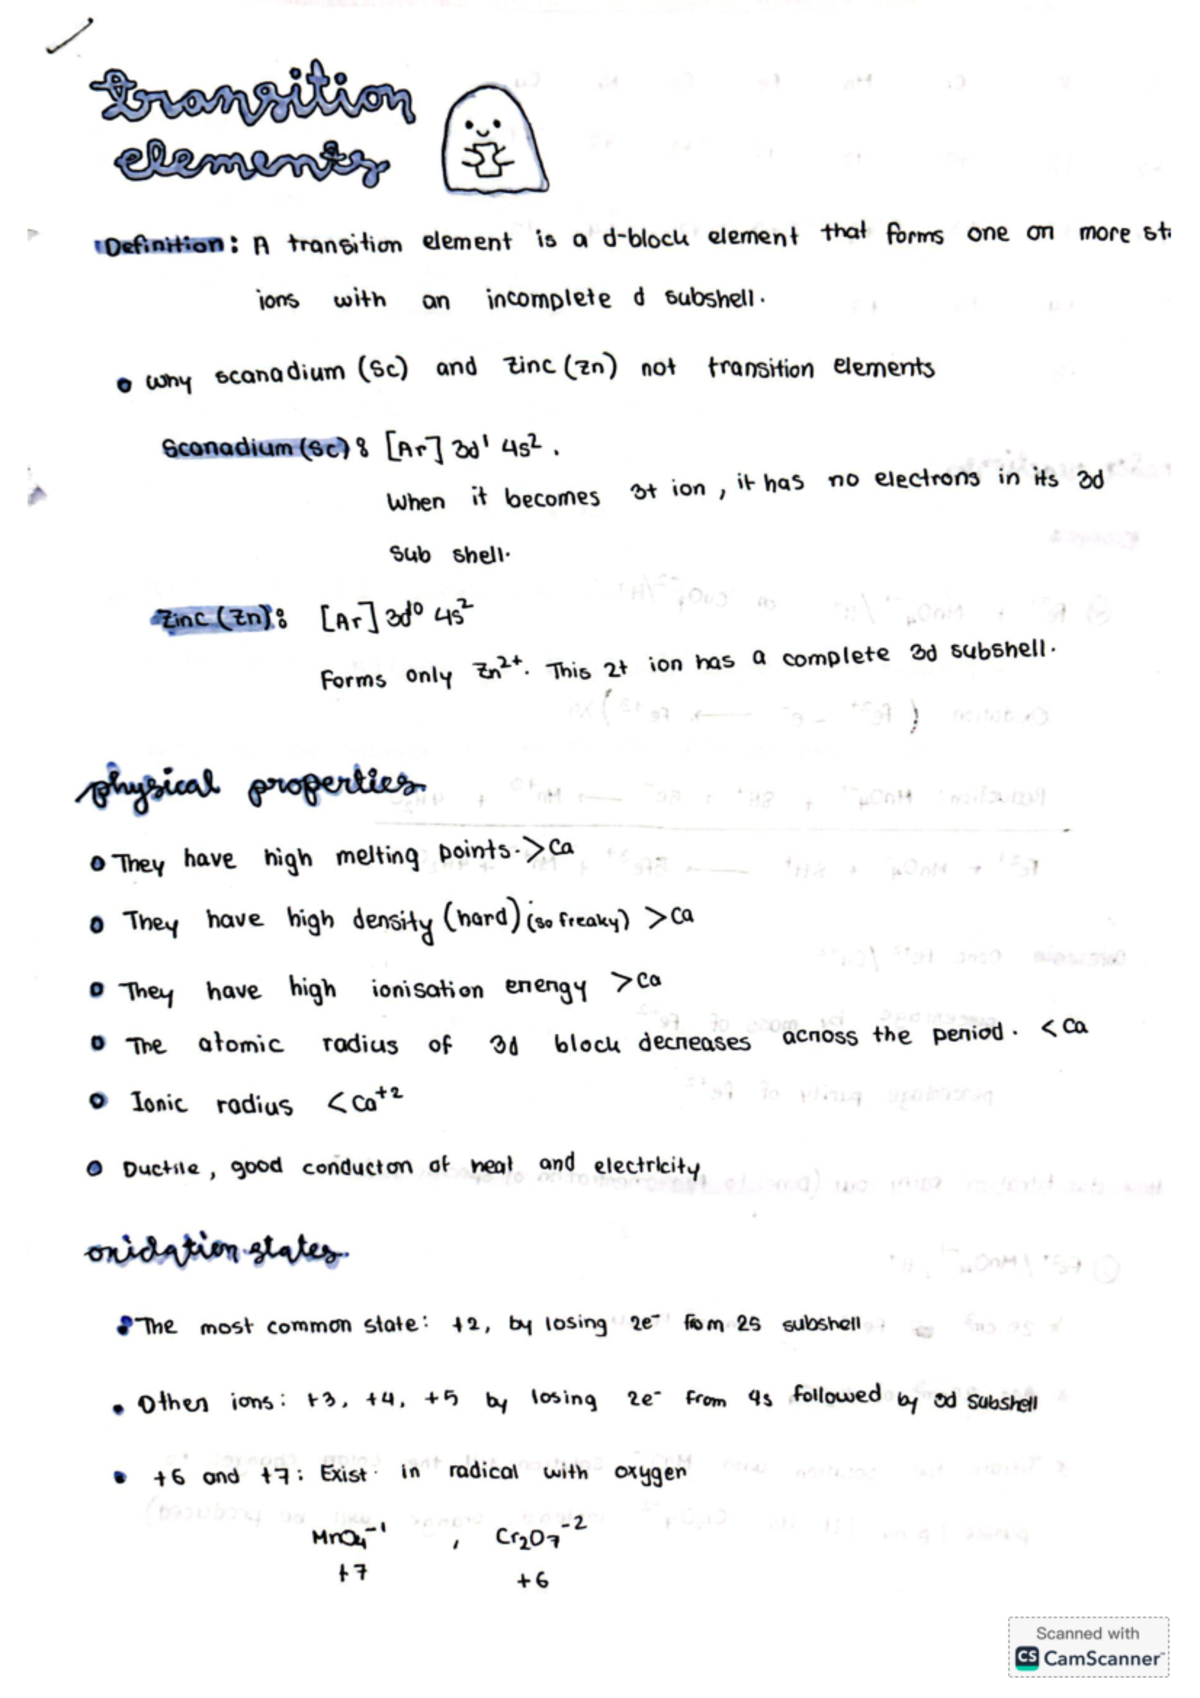 transition
elements
Definition: A transition element is a d-block element that forms one or more
ions with an incomplete d subshell.
why scanadium (Sc) and Zinc (Zn) not transition elements
Scanadium (Sc): [Ar] 3d¹ 4s².
When it becomes 3+ ion, it has no electrons in its 3d
sub shell.
Zinc (Zn): [Ar] 3d¹⁰ 4s²
Forms only Zn²⁺. This 2+ ion has a complete 3d subshell.
physical properties.
They have high melting points. >Ca
They have high density (hard) (so freaky) >Ca
They have high ionisation energy >Ca
The atomic radius of 3d block decreases across the period. <Ca
Ionic radius <Ca⁺²
Ductile, good conductor of heat and electricity
oxidation states.
The most common state: +2, by losing 2e⁻ from 2s subshell
Other ions: +3, +4, +5 by losing 2e⁻ from 4s followed by 3d subshell
+6 and +7: Exist in radical with oxygen
MnO₄⁻¹ , Cr₂O₇⁻²
+7 +6
Scanned with
CS CamScanner